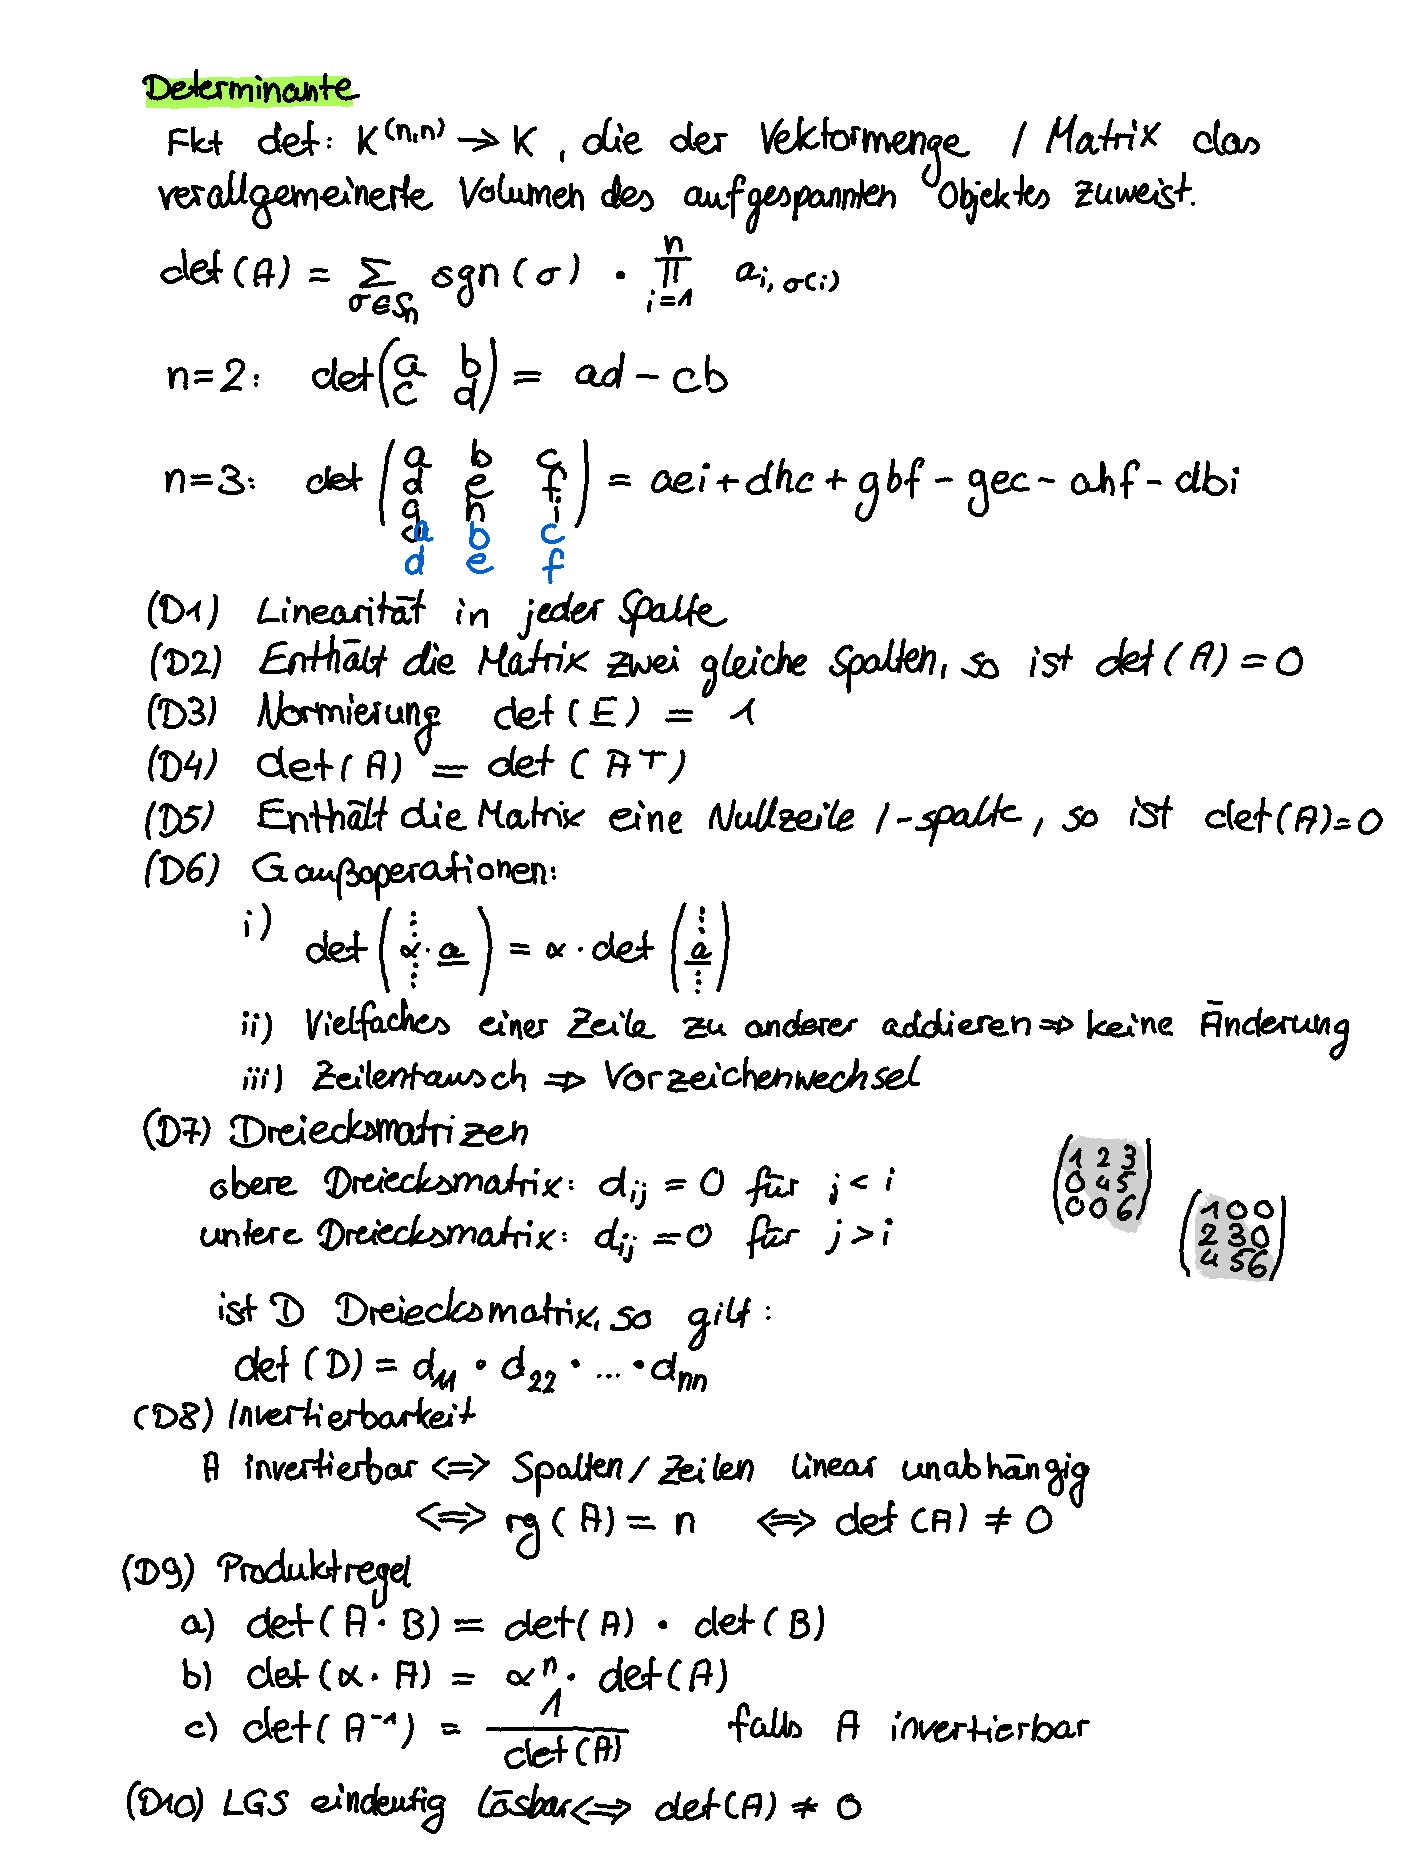 Determinante
Fkt det: K^(n,n) → K, die der Vektormenge / Matrix das
verallgemeinerte Volumen des aufgespannten Objektes zuweist.
det(A) = ∑_{σ∈S_n} sgn(σ) · ∏_{i=1}^{n} a_{i,σ(i)}
n=2: det(a b
c d) = ad - cb
n=3: det(a b c
d e f
g h i) = aei + dhc + gbf - gec - ahf - dbi
a b c
d e f
(D1) Linearität in jeder Spalte
(D2) Enthält die Matrix zwei gleiche Spalten, so ist det(A) = 0
(D3) Normierung det(E) = 1
(D4) det(A) = det(A^T)
(D5) Enthält die Matrix eine Nullzeile / -spalte, so ist det(A)=0
(D6) Gaußoperationen:
i) det(⋮ α·a ⋮) = α · det(⋮ a ⋮)
ii) Vielfaches einer Zeile zu anderer addieren ⇒ keine Änderung
iii) Zeilentausch ⇒ Vorzeichenwechsel
(D7) Dreiecksmatrizen
obere Dreiecksmatrix: d_ij = 0 für j < i
untere Dreiecksmatrix: d_ij = 0 für j > i
(1 2 3
0 4 5
0 0 6)
(1 0 0
2 3 0
4 5 6)
ist D Dreiecksmatrix, so gilt:
det(D) = d_11 · d_22 · ... · d_nn
(D8) Invertierbarkeit
A invertierbar ⇔ Spalten / Zeilen linear unabhängig
⇔ rg(A) = n ⇔ det(A) ≠ 0
(D9) Produktregel
a) det(A · B) = det(A) · det(B)
b) det(α · A) = α^n · det(A)
c) det(A^-1) = 1/det(A) falls A invertierbar
(D10) LGS eindeutig lösbar ⇔ det(A) ≠ 0